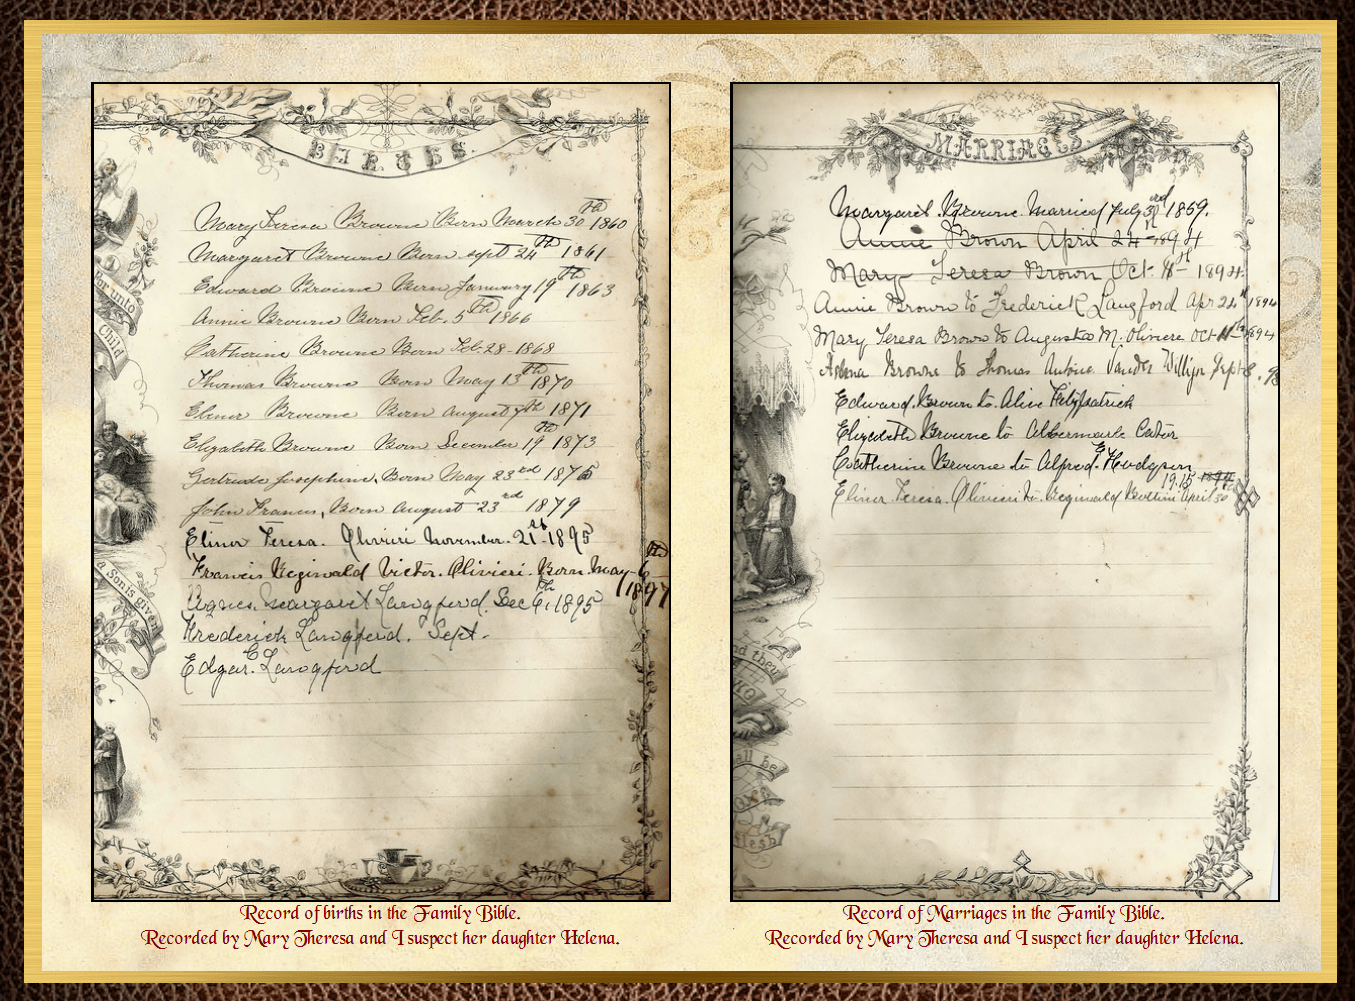 BIRTHS.
Mary Teresa Browne Born March 30th 1860
Margaret Browne Born sept 24th 1861
Edward Browne Born January 19th 1863
Annie Browne Born Feb. 5th 1866
Catherine Browne Born Feb 28 1868
Thomas Browne Born May 13th 1870
Elinor Browne Born august 7th 1871
Elizabeth Browne Born December 19th 1873
Gertrude Josephine, Born May 23rd 1875
John Francis, Born august 23rd 1879
Elinor Teresa. Olivieri November. 21st 1895
Francis Reginald Victor. Olivieri. Born. May 6th 1897
Agnes. Margaret Langford. Dec 6th, 1895
Frederick Langford. Sept.
Edgar. Langford
For unto
Child
a Son is given
Record of births in the Family Bible.
Recorded by Mary Theresa and I suspect her daughter Helena.
MARRIAGES.
Margaret Browne Married July 3rd 1859.
Annie Brown April 24 1894
Mary Teresa Brown Oct 1894.
Annie Brown to Frederick Langford Apr 24 1894
Mary Teresa Brown to Augustus M. Oliviere Oct 1894
Browne to Thomas Antoine Vander Willijn Sept 8.
Edward. Brown to. Alice Fitzpatrick
Elizabeth Browne to Albermarle Cator
Catherine Browne to Alfred. E Hodgson
Elinor. Teresa. Olivieri to. Reginald April 30 1915
and they
all be
flesh
Record of Marriages in the Family Bible.
Recorded by Mary Theresa and I suspect her daughter Helena.